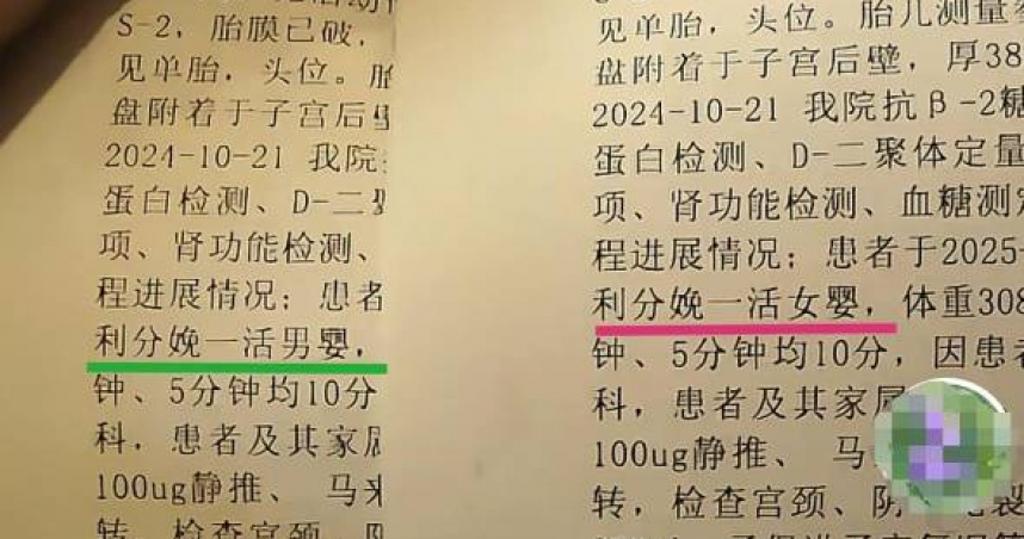 S-2，胎膜已破，
见单胎，头位。胎
盘附着于子宫后壁
2024-10-21 我院
蛋白检测、D-二聚
项、肾功能检测、
程进展情况：患者
利分娩一活男婴，
钟、5分钟均10分
科，患者及其家属
100ug静推、 马来
转，检查宫颈、阴
见单胎，头位。胎儿测量
盘附着于子宫后壁，厚38
2024-10-21 我院抗β-2糖
蛋白检测、D-二聚体定量
项、肾功能检测、血糖测定
程进展情况：患者于2025-
利分娩一活女婴，体重308
钟、5分钟均10分，因患者
科，患者及其家属
100ug静推、 马
转，检查宫颈、阴 裂